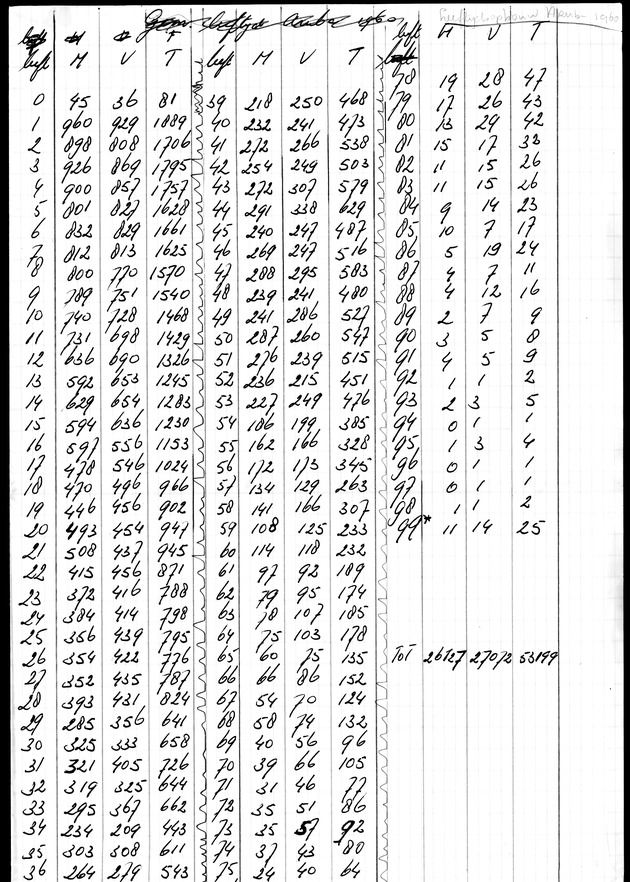 Leeftijdsopbouw Aruba 1960
leeft M V T
0 45 36 81
1 960 929 1889
2 898 808 1706
3 926 869 1795
4 900 857 1757
5 801 827 1628
6 832 829 1661
7 812 813 1625
8 800 770 1570
9 789 751 1540
10 740 728 1468
11 731 698 1429
12 636 690 1326
13 592 653 1245
14 629 654 1283
15 594 636 1230
16 597 556 1153
17 478 546 1024
18 470 496 966
19 446 456 902
20 493 454 947
21 508 437 945
22 415 456 871
23 372 416 788
24 384 414 798
25 356 439 795
26 354 422 776
27 352 435 787
28 393 431 824
29 285 356 641
30 325 333 658
31 321 405 726
32 319 325 644
33 295 367 662
34 234 209 443
35 303 308 611
36 264 279 543
leeft M V T
39 218 250 468
40 232 241 473
41 272 266 538
42 254 249 503
43 272 307 579
44 291 338 629
45 240 247 487
46 269 247 516
47 288 295 583
48 239 241 480
49 241 286 527
50 287 260 547
51 276 239 515
52 236 215 451
53 227 249 476
54 186 199 385
55 162 166 328
56 172 173 345
57 134 129 263
58 141 166 307
59 108 125 233
60 114 118 232
61 97 92 189
62 79 95 174
63 78 107 185
64 75 103 178
65 60 75 135
66 66 86 152
67 54 70 124
68 58 74 132
69 40 56 96
70 39 66 105
71 31 46 77
72 35 51 86
73 35 57 92
74 37 43 80
75 24 40 64
leeft M V T
78 19 28 47
79 17 26 43
80 13 29 42
81 15 17 33
82 11 15 26
83 11 15 26
84 9 14 23
85 10 7 17
86 5 19 24
87 4 7 11
88 4 12 16
89 2 7 9
90 3 5 8
91 4 5 9
92 1 1 2
93 2 3 5
94 0 1 1
95 1 3 4
96 0 1 1
97 0 1 1
98 1 1 2
99* 11 14 25
ToT 26127 27072 53199